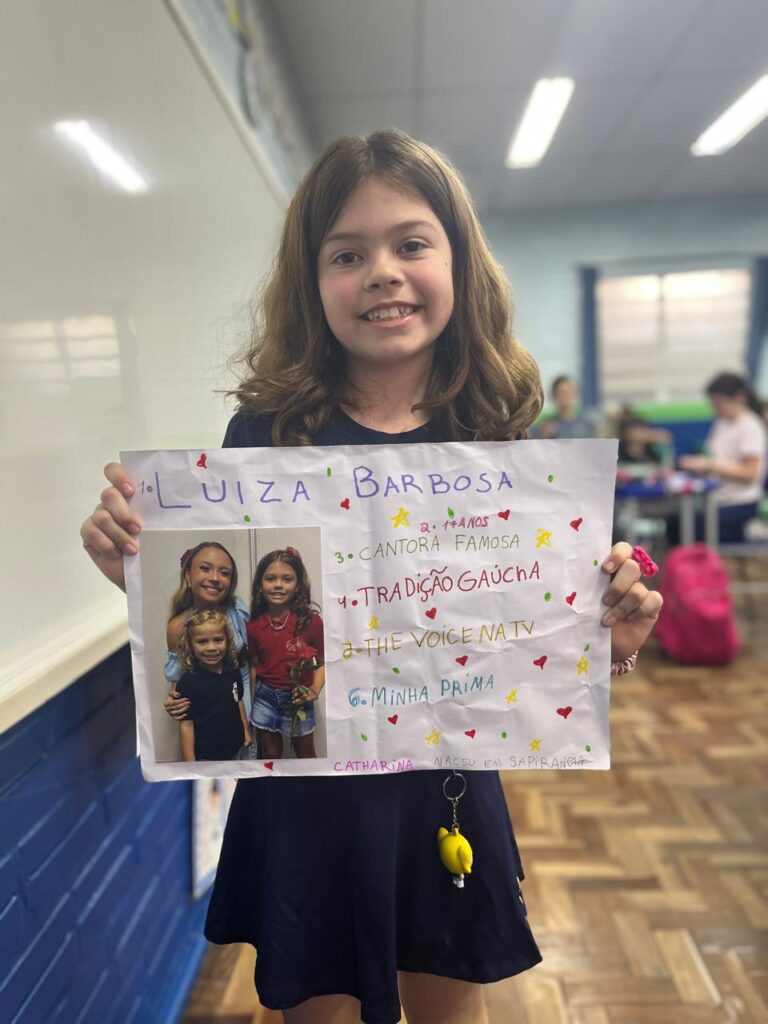 1. LUIZA BARBOSA
2. 17 ANOS
3. CANTORA FAMOSA
4. TRADIÇÃO GAÚCHA
2. THE VOICE NA TV
6. MINHA PRIMA
CATHARINA NACEU EM SAPIRANGA